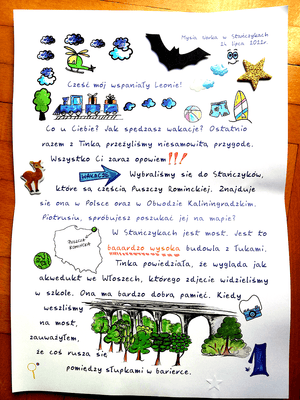 Mysia Norka w Stańczykach
24 lipca 2022r.
Cześć mój wspaniały Leonie!
Co u Ciebie? Jak spędzasz wakacje? Ostatnio
razem z Tinką przeżyliśmy niesamowitą przygodę.
Wszystko Ci zaraz opowiem!!!
WAKACJE Wybraliśmy się do Stańczyków,
które są częścią Puszczy Rominckiej. Znajduje
się ona w Polsce oraz w Obwodzie Kaliningradzkim.
Piotrusiu, spróbujesz poszukać jej na mapie?
PUSZCZA
ROMINCKA
W Stańczykach jest most. Jest to
baaardzo wysoka budowla z łukami.
Tinka powiedziała, że wygląda jak
akwedukt we Włoszech, którego zdjęcie widzieliśmy
w szkole. Ona ma bardzo dobrą pamięć. Kiedy
weszliśmy
na most,
zauważyłem,
że coś rusza się
pomiędzy słupkami w barierce.
1